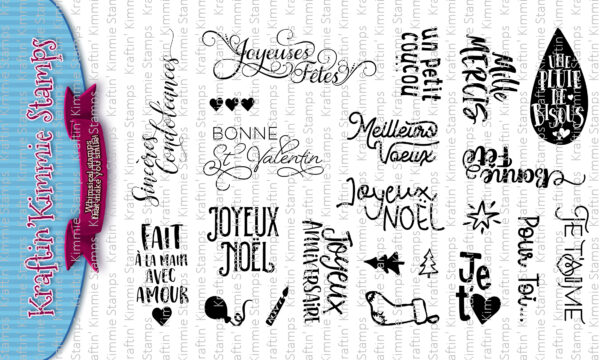 Kraftin' Kimmie Stamps
Whimsical stamps
that make you smile
Sincères
Condoléances
Joyeuses
Fêtes
un petit
coucou
Mille
MERCIS
UNE
PLUIE
DE
BISOUS
BONNE
St Valentin
Meilleurs
Voeux
Bonne
Fête
FAIT
À LA MAIN
AVEC
AMOUR
JOYEUX
NOËL
Joyeux
ANNIVERSAIRE
Joyeux
NOËL
Je
t
Pour Toi...
JE T'AIME